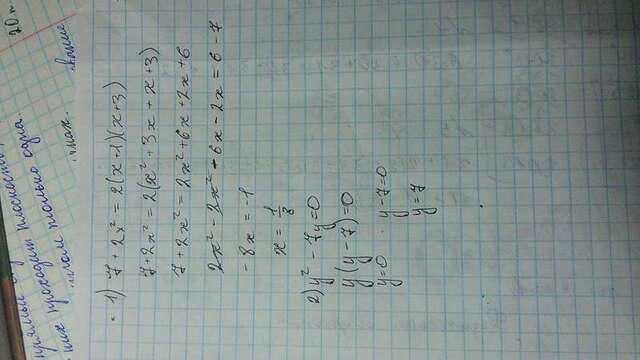 прямые
них проходит плоскость,
том только одна.
20 п
1) 7 + 2x² = 2(x+1)(x+3)
7+2x² = 2(x² + 3x + x + 3)
7 + 2x² = 2x² + 6x + 2x + 6
2x² - 2x² - 6x - 2x = 6 - 7
-8x = -1
x = 1/8
2) y² - 7y = 0
y(y - 7) = 0
y = 0 y - 7 = 0
y = 7